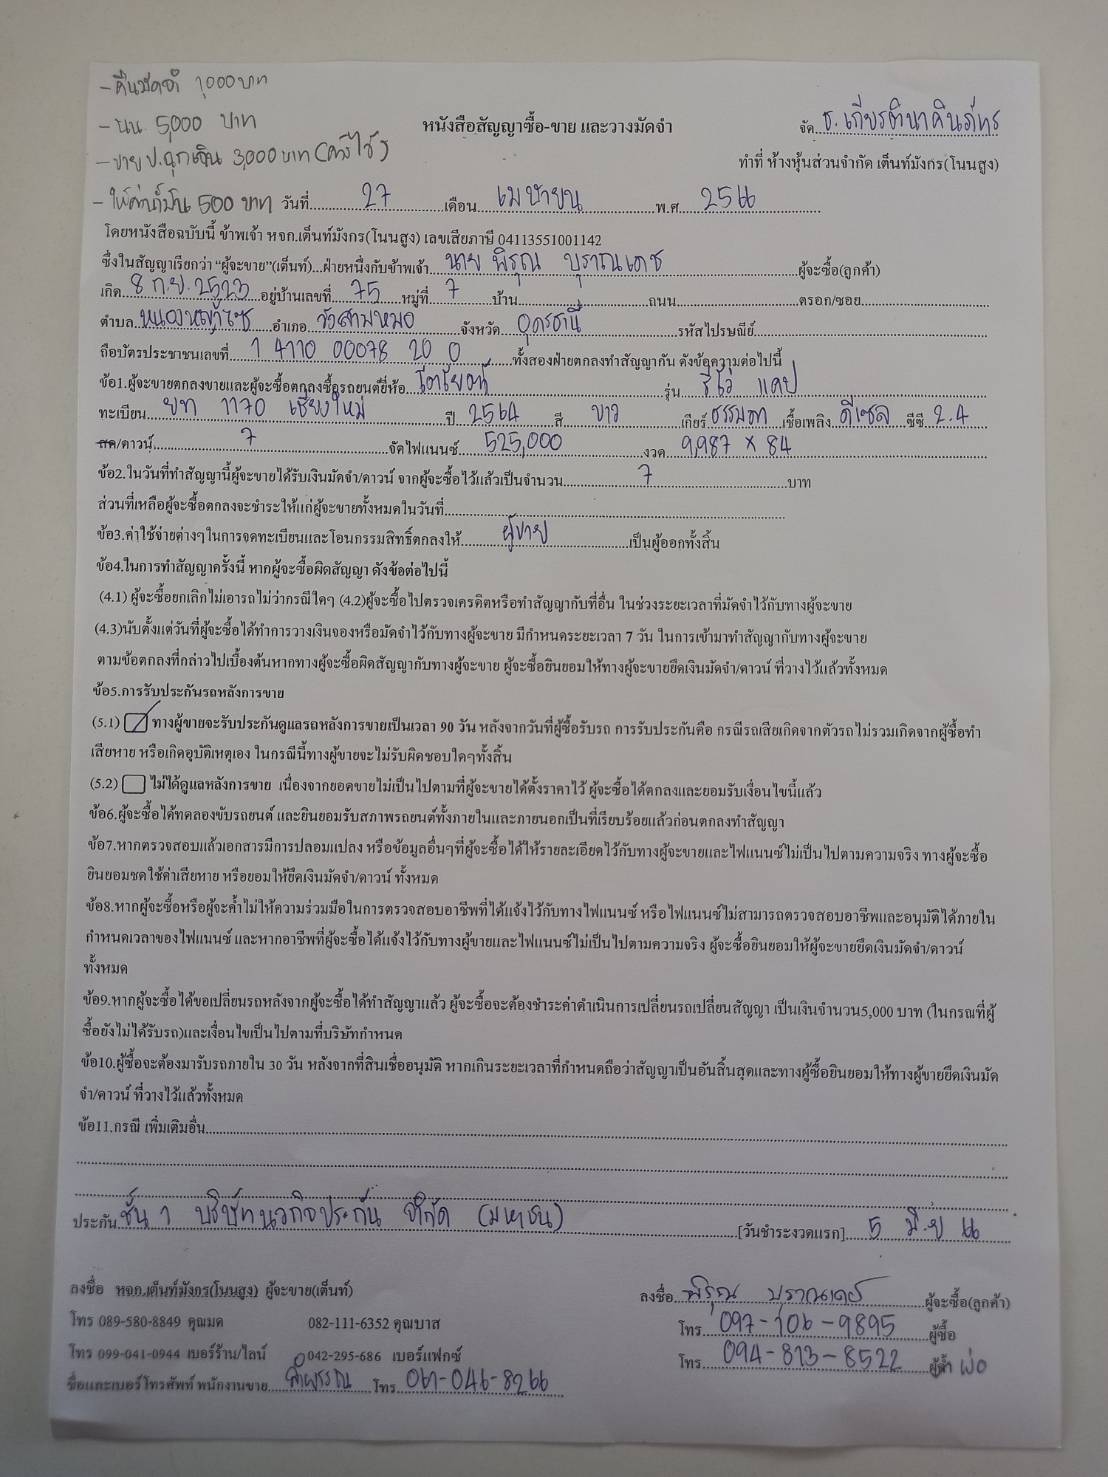 - คืนมัดจำ 1,000 บาท
- นน. 5000 บาท
- ขายป.ฉุกเฉิน 3,000 บาท (ค้างไว้)
- ให้ค่าน้ำมัน 500 บาท
หนังสือสัญญาซื้อ-ขาย และวางมัดจำ
จัด ธ.เกียรตินาคินภัทร
ทำที่ ห้างหุ้นส่วนจำกัด เต็นท์มังกร(โนนสูง)
วันที่ 27 เดือน เมษายน พ.ศ 2566
โดยหนังสือฉบับนี้ ข้าพเจ้า หจก.เต็นท์มังกร(โนนสูง) เลขเสียภาษี 04113551001142
ซึ่งในสัญญาเรียกว่า "ผู้จะขาย"(เต็นท์)...ฝ่ายหนึ่งกับข้าพเจ้า นาย พิรุณ บุราณเดช ผู้จะซื้อ(ลูกค้า)
เกิด 8 ก.ย. 2523 อยู่บ้านเลขที่ 75 หมู่ที่ 7 บ้าน ถนน ตรอก/ซอย
ตำบล หนองหญ้าไซ อำเภอ วังสามหมอ จังหวัด อุดรธานี รหัสไปรษณีย์
ถือบัตรประชาชนเลขที่ 1 4110 00078 20 0 ทั้งสองฝ่ายตกลงทำสัญญากัน ดังข้อความต่อไปนี้
ข้อ1.ผู้จะขายตกลงขายและผู้จะซื้อตกลงซื้อรถยนต์ยี่ห้อ โตโยต้า รุ่น รีโว่ แคป
ทะเบียน ยท 1170 เชียงใหม่ ปี 2564 สี ขาว เกียร์ ธรรมดา เชื้อเพลิง ดีเซล ซีซี 2.4
สด/ดาวน์ 7 จัดไฟแนนซ์ 525,000 งวด 9,987 x 84
ข้อ2.ในวันที่ทำสัญญานี้ผู้จะขายได้รับเงินมัดจำ/ดาวน์ จากผู้จะซื้อไว้แล้วเป็นจำนวน 7 บาท
ส่วนที่เหลือผู้จะซื้อตกลงจะชำระให้แก่ผู้จะขายทั้งหมดในวันที่
ข้อ3.ค่าใช้จ่ายต่างๆในการจดทะเบียนและโอนกรรมสิทธิ์ตกลงให้ ผู้ขาย เป็นผู้ออกทั้งสิ้น
ข้อ4.ในการทำสัญญาครั้งนี้ หากผู้จะซื้อผิดสัญญา ดังข้อต่อไปนี้
(4.1) ผู้จะซื้อยกเลิกไม่เอารถไม่ว่ากรณีใดๆ (4.2)ผู้จะซื้อไปตรวจเครดิตหรือทำสัญญากับที่อื่น ในช่วงระยะเวลาที่มัดจำไว้กับทางผู้จะขาย
(4.3)นับตั้งแต่วันที่ผู้จะซื้อได้ทำการวางเงินจองหรือมัดจำไว้กับทางผู้จะขาย มีกำหนดระยะเวลา 7 วัน ในการเข้ามาทำสัญญากับทางผู้จะขาย
ตามข้อตกลงที่กล่าวไปเบื้องต้นหากทางผู้จะซื้อผิดสัญญากับทางผู้จะขาย ผู้จะซื้อยินยอมให้ทางผู้จะขายยึดเงินมัดจำ/ดาวน์ ที่วางไว้แล้วทั้งหมด
ข้อ5.การรับประกันรถหลังการขาย
(5.1) ทางผู้ขายจะรับประกันดูแลรถหลังการขายเป็นเวลา 90 วัน หลังจากวันที่ผู้ซื้อรับรถ การรับประกันคือ กรณีรถเสียเกิดจากตัวรถไม่รวมเกิดจากผู้ซื้อทำ
เสียหาย หรือเกิดอุบัติเหตุเอง ในกรณีนี้ทางผู้ขายจะไม่รับผิดชอบใดๆทั้งสิ้น
(5.2) ไม่ได้ดูแลหลังการขาย เนื่องจากยอดขายไม่เป็นไปตามที่ผู้จะขายได้ตั้งราคาไว้ ผู้จะซื้อได้ตกลงและยอมรับเงื่อนไขนี้แล้ว
ข้อ6.ผู้จะซื้อได้ทดลองขับรถยนต์ และยินยอมรับสภาพรถยนต์ทั้งภายในและภายนอกเป็นที่เรียบร้อยแล้วก่อนตกลงทำสัญญา
ข้อ7.หากตรวจสอบแล้วเอกสารมีการปลอมแปลง หรือข้อมูลอื่นๆที่ผู้จะซื้อได้ให้รายละเอียดไว้กับทางผู้จะขายและไฟแนนซ์ไม่เป็นไปตามความจริง ทางผู้จะซื้อ
ยินยอมชดใช้ค่าเสียหาย หรือยอมให้ยึดเงินมัดจำ/ดาวน์ ทั้งหมด
ข้อ8.หากผู้จะซื้อหรือผู้จะค้ำไม่ให้ความร่วมมือในการตรวจสอบอาชีพที่ได้แจ้งไว้กับทางไฟแนนซ์ หรือไฟแนนซ์ไม่สามารถตรวจสอบอาชีพและอนุมัติได้ภายใน
กำหนดเวลาของไฟแนนซ์ และหากอาชีพที่ผู้จะซื้อได้แจ้งไว้กับทางผู้ขายและไฟแนนซ์ไม่เป็นไปตามความจริง ผู้จะซื้อยินยอมให้ผู้จะขายยึดเงินมัดจำ/ดาวน์
ทั้งหมด
ข้อ9.หากผู้จะซื้อได้ขอเปลี่ยนรถหลังจากผู้จะซื้อได้ทำสัญญาแล้ว ผู้จะซื้อจะต้องชำระค่าดำเนินการเปลี่ยนรถเปลี่ยนสัญญา เป็นเงินจำนวน5,000 บาท (ในกรณที่ผู้
ซื้อยังไม่ได้รับรถ)และเงื่อนไขเป็นไปตามที่บริษัทกำหนด
ข้อ10.ผู้ซื้อจะต้องมารับรถภายใน 30 วัน หลังจากที่สินเชื่ออนุมัติ หากเกินระยะเวลาที่กำหนดถือว่าสัญญาเป็นอันสิ้นสุดและทางผู้ซื้อยินยอมให้ทางผู้ขายยึดเงินมัด
จำ/ดาวน์ ที่วางไว้แล้วทั้งหมด
ข้อ11.กรณี เพิ่มเติมอื่น
ประกัน ชั้น 1 บริษัทนวกิจประกัน จำกัด (มหาชน) [วันชำระงวดแรก] 5 มิ.ย 66
ลงชื่อ หจก.เต็นท์มังกร(โนนสูง) ผู้จะขาย(เต็นท์)
โทร 089-580-8849 คุณมด 082-111-6352 คุณบาส
โทร 099-041-0944 เบอร์ร้าน/ไลน์ 042-295-686 เบอร์แฟกซ์
ชื่อและเบอร์โทรศัพท์ พนักงานขาย ลำพรรณ โทร 061-046-8266
ลงชื่อ พิรุณ บุราณเดช ผู้จะซื้อ(ลูกค้า)
โทร 097-106-9895 ผู้ซื้อ
โทร 094-813-8522 ผู้ค้ำ พ่อ